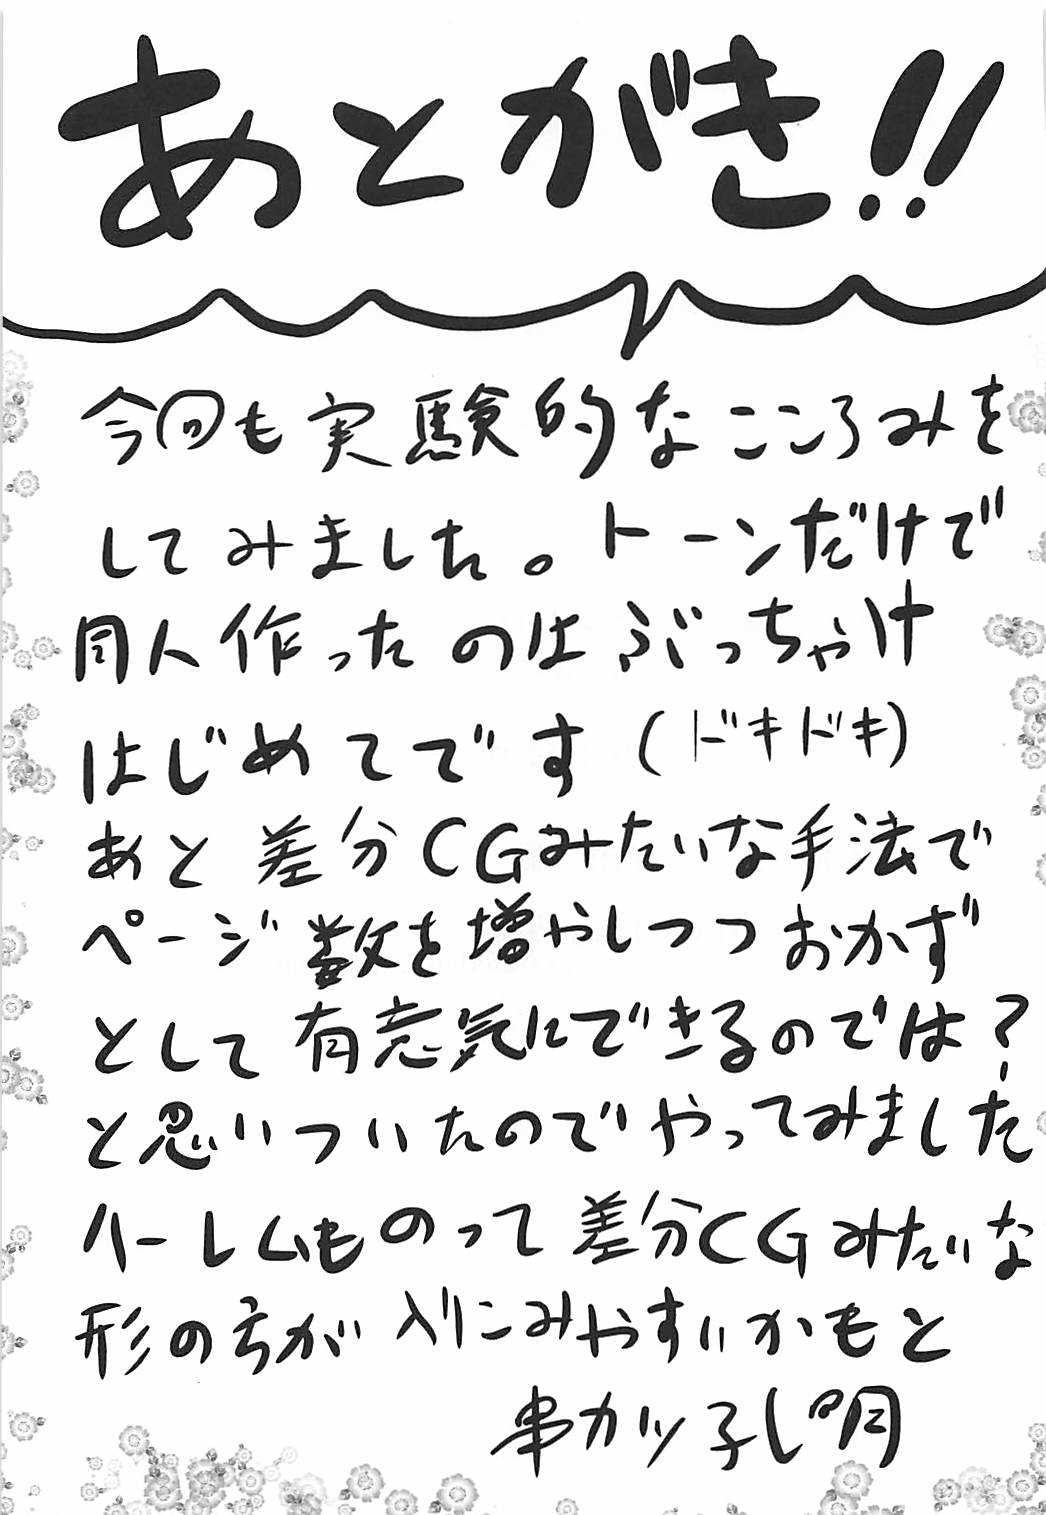 あとがき!!
今回も実験的なこころみを
してみました。トーンだけで
同人作ったのはぶっちゃけ
はじめてです(ドキドキ)
あと差分CGみたいな手法で
ページ数を増やしつつおかず
として有意気にできるのでは?
と思いついたのでやってみました
ハーレムものって差分CGみたいな
形の方が入りこみやすいかもと
串カツ子し明